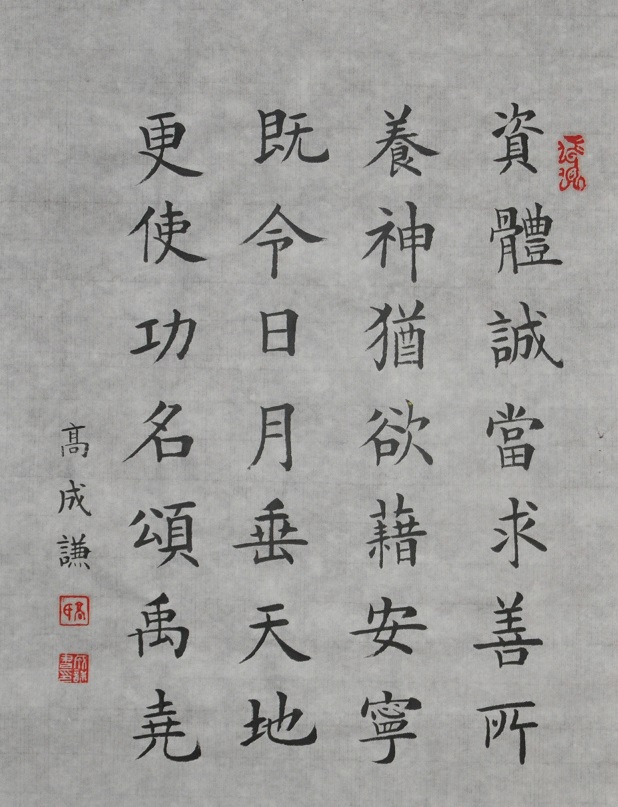 資體誠當求善所
養神猶欲藉安寧
既令日月垂天地
更使功名頌禹堯
高成謙